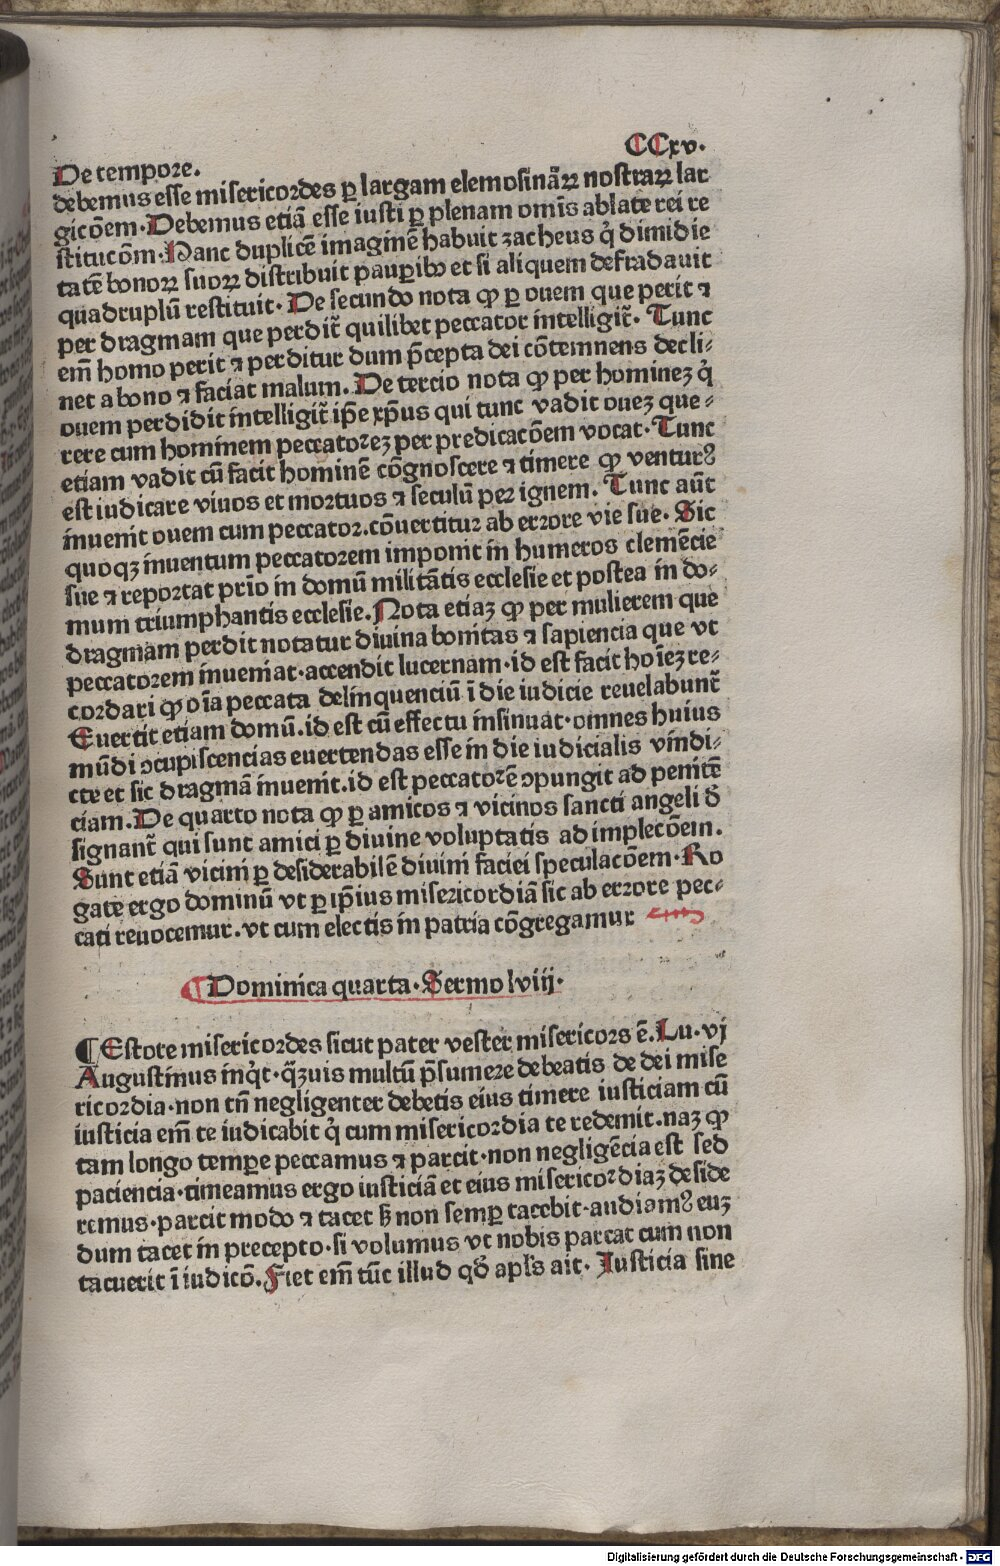 CCxv.
De tempore.
debemus esse misericordes ꝑ largam elemosinãꝝ nostraꝝ lar
gicõem. Debemus etiã esse iusti ꝑ plenam om̃s ablate rei re
stitucõm. Hanc duplicẽ imaginẽ habuit zacheus q̇ dimidie
tatẽ bonoꝝ suoꝝ distribuit pauꝑibꝰ et si aliquem defradauit
quadruplũ restituit. De secundo nota ꝙ ꝑ ouem que perit ⁊
per dragmam que perdit̃ quilibet peccator intelligit̃. Tunc
em̃ homo perit ⁊ perditur dum p̃cepta dei cõtemnens decli-
net a bono ⁊ faciat malum. De tercio nota ꝙ per hominez q̇
ouem perdidit intelligit̃ ip̃e xp̃us qui tunc vadit ouez que-
rere cum hominem peccatorez per predicacõem vocat. Tunc
etiam vadit cũ facit hominẽ cõgnoscere ⁊ timere ꝙ venturꝰ
est iudicare viuos et mortuos ⁊ seculũ per ignem. Tunc aũt
inuenit ouem cum peccator.cõuertitur ab errore vie sue. Sic
quoqꝫ inuentum peccatorem imponit in humeros clemẽcie
sue ⁊ reportat prĩo in domũ militãtis ecclesie et postea in do-
mum triumphantis ecclesie. Nota etiaz ꝙ per mulierem que
dragmam perdit notatur diuina bonitas ⁊ sapiencia que vt
peccatorem inueniat. accendit lucernam. id est facit hoĩez re-
cordari ꝙ oĩa peccata delinquenciũ ĩ die iudicie reuelabunt̃
Euertit etiam domũ. id est cũ effectu insinuat. omnes huius
mũdi ↄcupiscencias euertendas esse in die iudicialis vindi-
cte et sic dragmã inuenit. id est peccatorẽ ↄpungit ad penitẽ
ciam. De quarto nota ꝙ ꝑ amicos ⁊ vicinos sancti angeli d̃
signant̃ qui sunt amici ꝑ diuine voluptatis ad implecõem.
Sunt etiã vicini ꝑ desiderabilẽ diuini faciei speculacõem. Ro
gate ergo dominũ vt ꝑ ip̃ius misericordiã sic ab errore pec-
cati reuocemur. vt cum electis in patria cõgregamur
¶ Dominica quarta. Sermo lviij.
¶ Estote misericordes sicut pater vester misericors ẽ. Lu. vj
Augustinus inq̇t. q̃ꝫuis multũ p̃sumere debeatis de dei mise
ricordia. non tñ negligenter debetis eius timere iusticiam cũ
iusticia em̃ te iudicabit q̇ cum misericordia te redemit. naz ꝙ
tam longo temꝑe peccamus ⁊ parcit. non negligẽcia est sed
paciencia. timeamus ergo iusticiã et eius misericordiaz deside
remus. parcit modo ⁊ tacet ẞ non semꝑ tacebit. audiamꝰ euz
dum tacet in precepto. si volumus vt nobis parcat cum non
tacuerit ĩ iudicõ. Fiet em̃ tũc illud qd̃ apl̃s ait. Iusticia sine
Digitalisierung gefördert durch die Deutsche Forschungsgemeinschaft - DFG